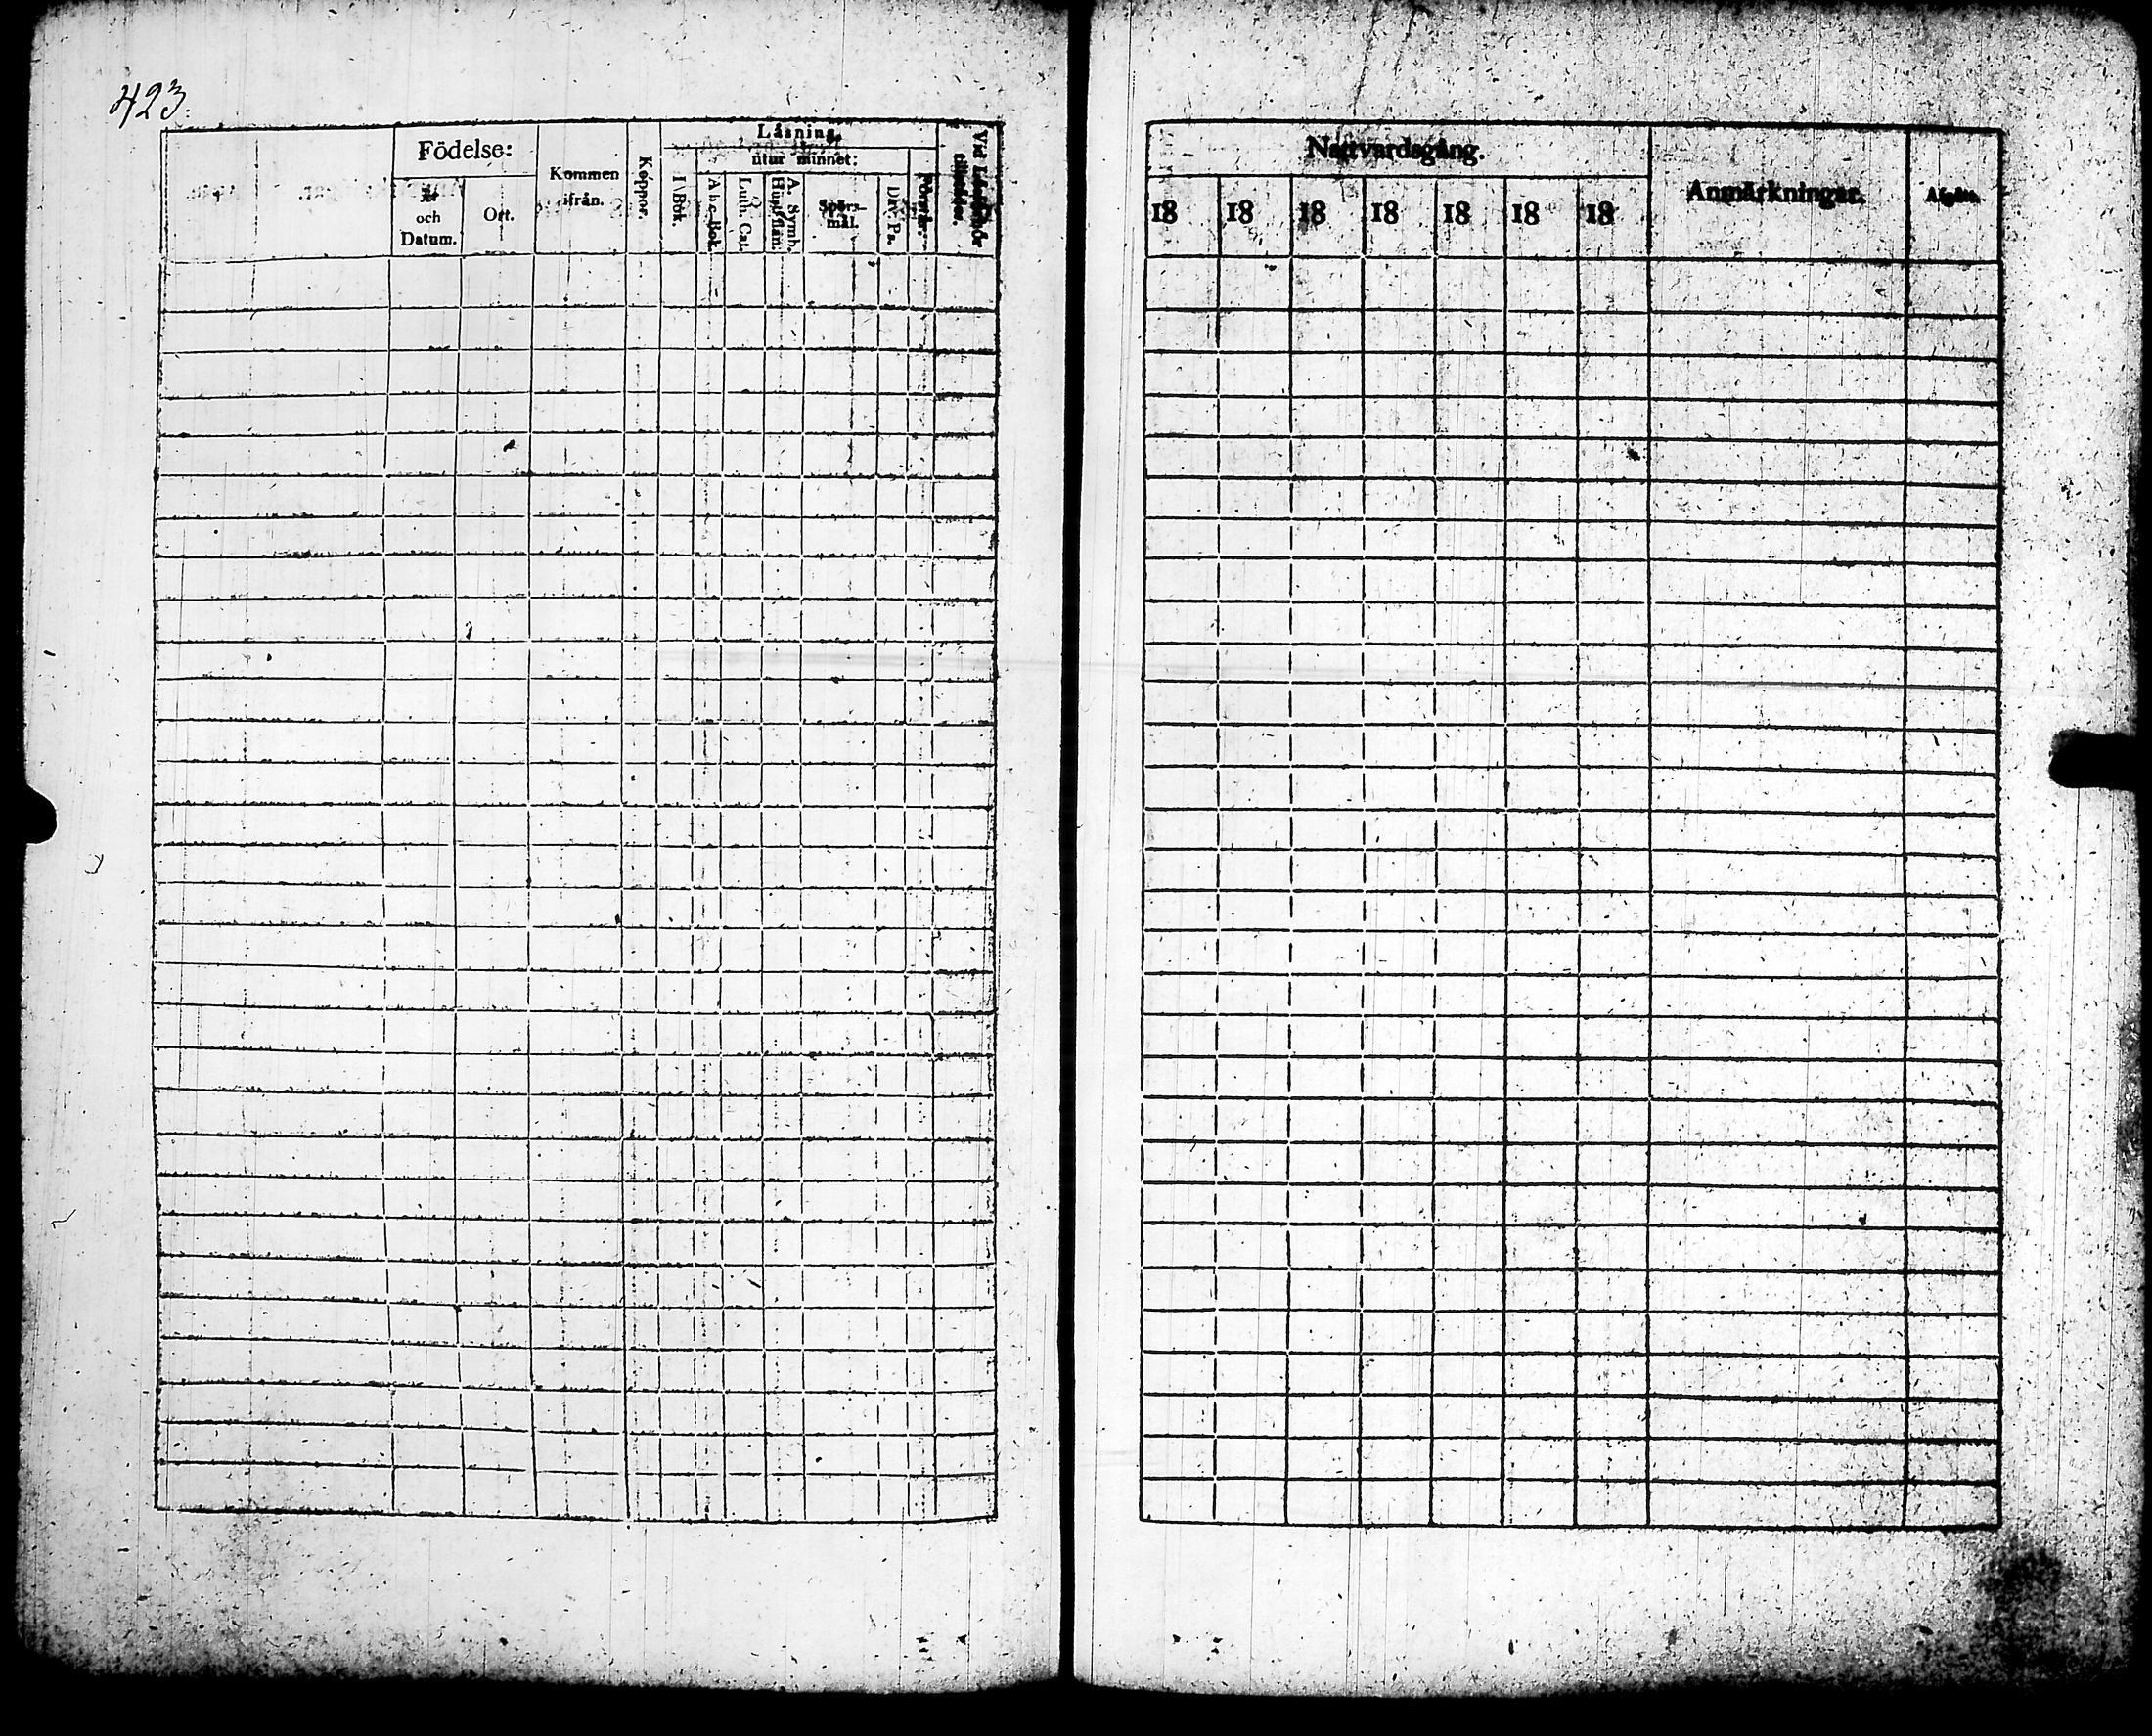 423.
Födelse:
År
och
Datum.
Ort.
Kommen
ifrån.
Koppor.
Läsning,
utur minnet:
I Bok.
Abc-Bok.
Luth. Cat.
A. Symb.
Hustaflan.
Spörs-
mål.
Dav. Ps.
Vid Läseförhör
Nattvardsgång.
18 18 18 18 18 18 18
Anmärkningar.
Afgått.